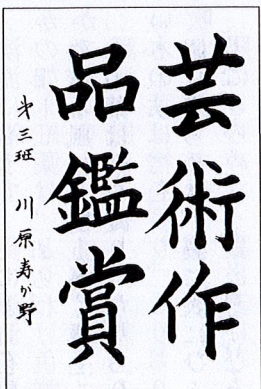 芸術作
品鑑賞
第三班 川原寿が野